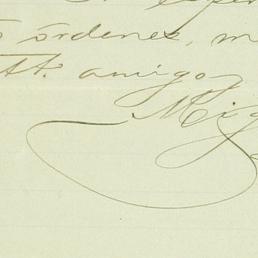 órdenes, m
Att. amigo
Mig